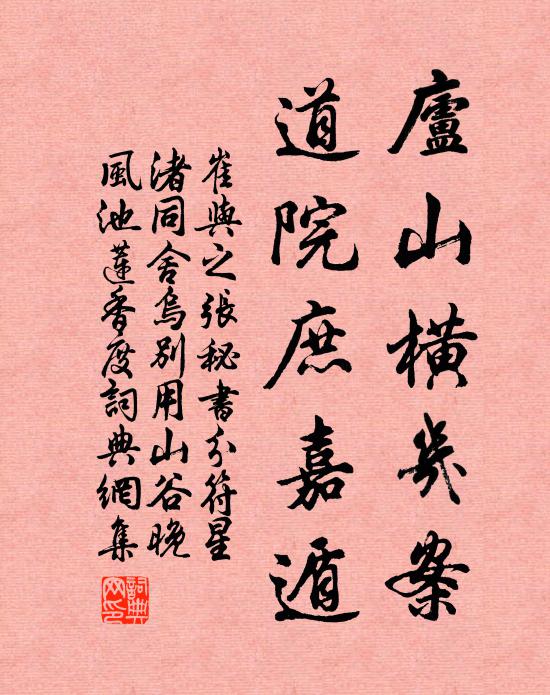 廬山橫几案
道院庶嘉遁
崔與之張秘書分符星
渚同舍烏別用山谷晚
風池蓮香度詞典網集
詞典網印